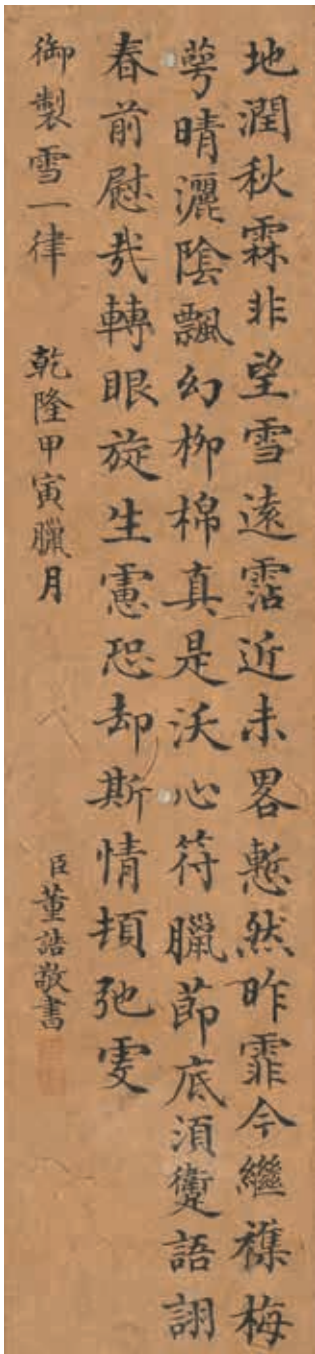 地潤秋霖非望雪遠霑近未畧慙然昨霏今繼襍梅
萼晴灑陰飄幻柳棉真是沃心符臘節底須躗語詡
春前慰哉轉眼旋生慮恐却斯情頓弛虔
御製雪一律 乾隆甲寅臘月 臣董誥敬書